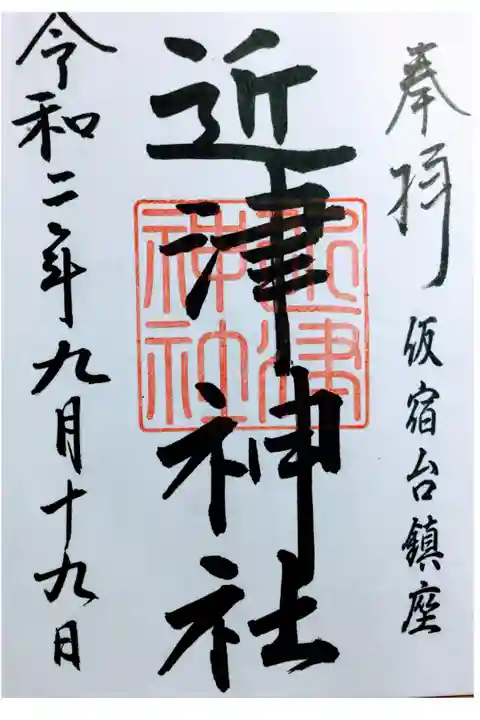 奉拝
仮宿台鎮座
近津神社
近津
神社
令和二年九月十九日